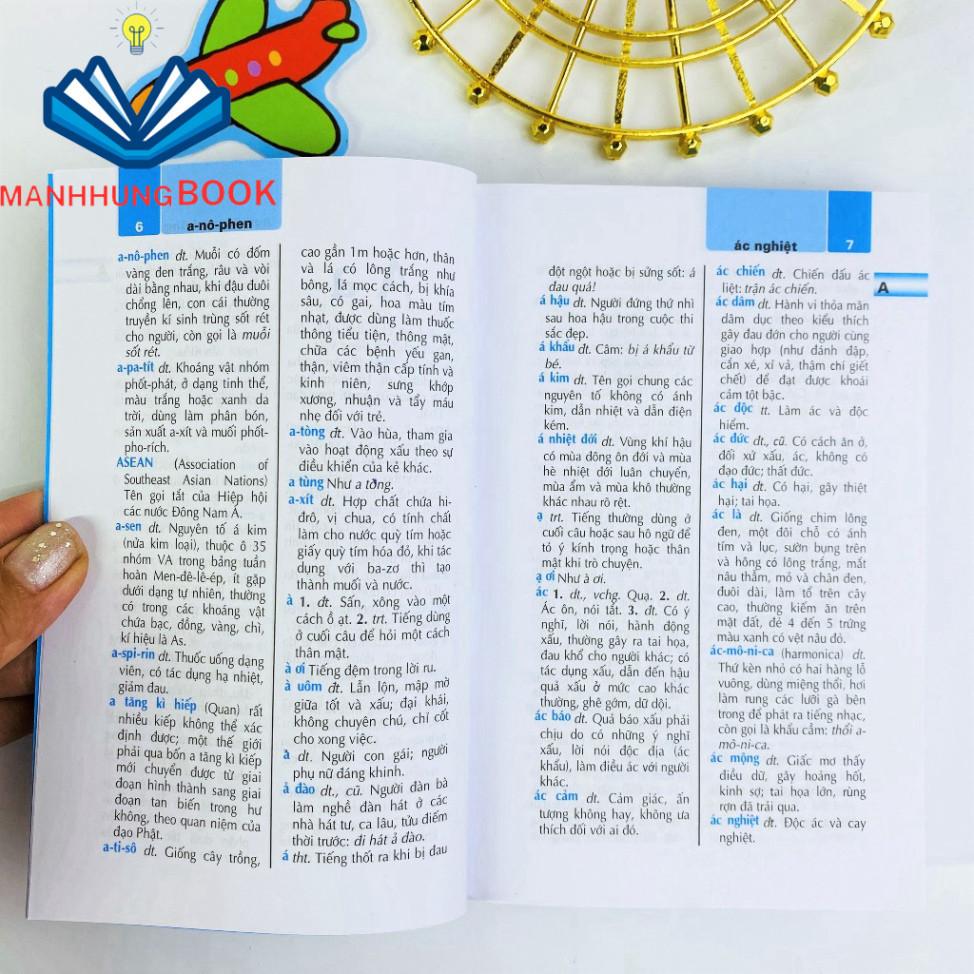 MANHHUNG BOOK
6
a-nô-phen
a-nô-phen dt. Muỗi có đốm
vàng đen trắng, râu và vòi
dài bằng nhau, khi đậu đuôi
chổng lên, con cái thường
truyền kí sinh trùng sốt rét
cho người, còn gọi là muỗi
sốt rét.
a-pa-tít dt. Khoáng vật nhóm
phốt-phát, ở dạng tinh thể,
màu trắng hoặc xanh da
trời, dùng làm phân bón,
sản xuất a-xít và muối phốt-
pho-rích.
ASEAN (Association of
Southeast Asian Nations)
Tên gọi tắt của Hiệp hội
các nước Đông Nam Á.
a-sen dt. Nguyên tố á kim
(nửa kim loại), thuộc ô 35
nhóm VA trong bảng tuần
hoàn Men-đê-lê-ép, ít gặp
dưới dạng tự nhiên, thường
có trong các khoáng vật
chứa bạc, đồng, vàng, chì,
kí hiệu là As.
a-spi-rin dt. Thuốc uống dạng
viên, có tác dụng hạ nhiệt,
giảm đau.
a tăng kì hiếp (Quan) rất
nhiều kiếp không thể xác
định được; một thế giới
phải qua bốn a tăng kì kiếp
mới chuyển được từ giai
đoạn hình thành sang giai
đoạn tan biến trong hư
không, theo quan niệm của
đạo Phật.
a-ti-sô dt. Giống cây trồng,
cao gần 1m hoặc hơn, thân
và lá có lông trắng như
bông, lá mọc cách, bị khía
sâu, có gai, hoa màu tím
nhạt, được dùng làm thuốc
thông tiểu tiện, thông mật,
chữa các bệnh yếu gan,
thận, viêm thận cấp tính và
kinh niên, sưng khớp
xương, nhuận và tẩy máu
nhẹ đối với trẻ.
a-tòng đt. Vào hùa, tham gia
vào hoạt động xấu theo sự
điều khiển của kẻ khác.
a tùng Như a tòng.
a-xít dt. Hợp chất chứa hi-
đrô, vị chua, có tính chất
làm cho nước quỳ tím hoặc
giấy quỳ tím hóa đỏ, khi tác
dụng với ba-zơ thì tạo
thành muối và nước.
à 1. đt. Sấn, xông vào một
cách ồ ạt. 2. trt. Tiếng dùng
ở cuối câu để hỏi một cách
thân mật.
à ơi Tiếng đệm trong lời ru.
à uôm đt. Lẫn lộn, mập mờ
giữa tốt và xấu; đại khái,
không chuyên chú, chỉ cốt
cho xong việc.
ả dt. Người con gái; người
phụ nữ đáng khinh.
ả đào dt., cũ. Người đàn bà
làm nghề đàn hát ở các
nhà hát tư, ca lâu, tửu điếm
thời trước: đi hát ả đào.
á tht. Tiếng thốt ra khi bị đau
ác nghiệt
7
A
đột ngột hoặc bị sửng sốt: á
đau quá!
á hậu dt. Người đứng thứ nhì
sau hoa hậu trong cuộc thi
sắc đẹp.
á khẩu đt. Câm: bị á khẩu từ
bé.
á kim dt. Tên gọi chung các
nguyên tố không có ánh
kim, dẫn nhiệt và dẫn điện
kém.
á nhiệt đới dt. Vùng khí hậu
có mùa đông ôn đới và mùa
hè nhiệt đới luân chuyển,
mùa ẩm và mùa khô thường
khác nhau rõ rệt.
ạ trt. Tiếng thường dùng ở
cuối câu hoặc sau hô ngữ để
tỏ ý kính trọng hoặc thân
mật khi trò chuyện.
ạ ơi Như à ơi.
ác 1. dt., vchg. Quạ. 2. dt.
Ác ôn, nói tắt. 3. đt. Có ý
nghĩ, lời nói, hành động
xấu, thường gây ra tai họa,
đau khổ cho người khác; có
tác dụng xấu, dẫn đến hậu
quả xấu ở mức cao khác
thường, ghê gớm, dữ dội.
ác báo dt. Quả báo xấu phải
chịu do có những ý nghĩ
xấu, lời nói độc địa (ác
khẩu), làm điều ác với người
khác.
ác cảm dt. Cảm giác, ấn
tượng không hay, không ưa
thích đối với ai đó.
ác chiến đt. Chiến đấu ác
liệt: trận ác chiến.
ác dâm dt. Hành vi thỏa mãn
dâm dục theo kiểu thích
gây đau đớn cho người cùng
giao hợp (như đánh đập,
cắn xé, xỉ vả, thậm chí giết
chết) để đạt được khoái
cảm tột bậc.
ác độc tt. Làm ác và độc
hiểm.
ác đức đt., cũ. Có cách ăn ở,
đối xử xấu, ác, không có
đạo đức; thất đức.
ác hại đt. Có hại, gây thiệt
hại; tai họa.
ác là dt. Giống chim lông
đen, một đôi chỗ có ánh
tím và lục, sườn bụng trên
và hông có lông trắng, mắt
nâu thẫm, mỏ và chân đen,
đuôi dài, làm tổ trên cây
cao, thường kiếm ăn trên
mặt đất, đẻ 4 đến 5 trứng
màu xanh có vệt nâu đỏ.
ác-mô-ni-ca (harmonica) dt.
Thứ kèn nhỏ có hai hàng lỗ
vuông, dùng miệng thổi, hơi
làm rung các lưỡi gà bên
trong để phát ra tiếng nhạc,
còn gọi là khẩu cầm: thổi a-
mô-ni-ca.
ác mộng dt. Giấc mơ thấy
điều dữ, gây hoảng hốt,
kinh sợ; tai họa lớn, rùng
rợn đã trải qua.
ác nghiệt đt. Độc ác và cay
nghiệt.